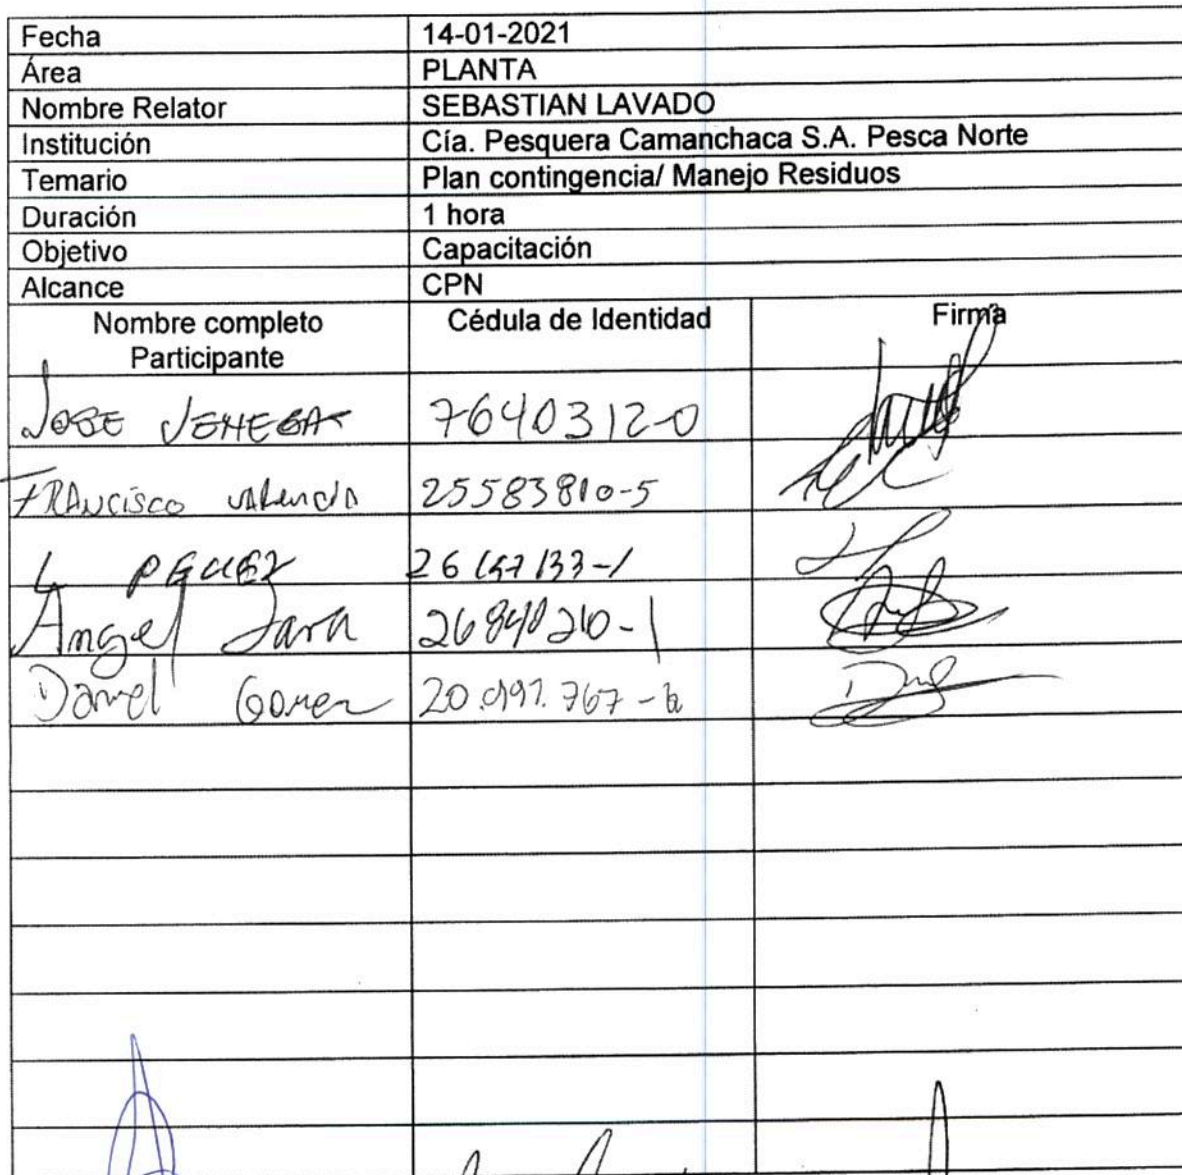 Fecha 14-01-2021
Área PLANTA
Nombre Relator SEBASTIAN LAVADO
Institución Cía. Pesquera Camanchaca S.A. Pesca Norte
Temario Plan contingencia/ Manejo Residuos
Duración 1 hora
Objetivo Capacitación
Alcance CPN
Nombre completo Participante Cédula de Identidad Firma
JOSE VENEGAS 7640312-0
FRANCISCO VALENCIA 25583810-5
Angel Jara 26840210-1
Daniel Gomez